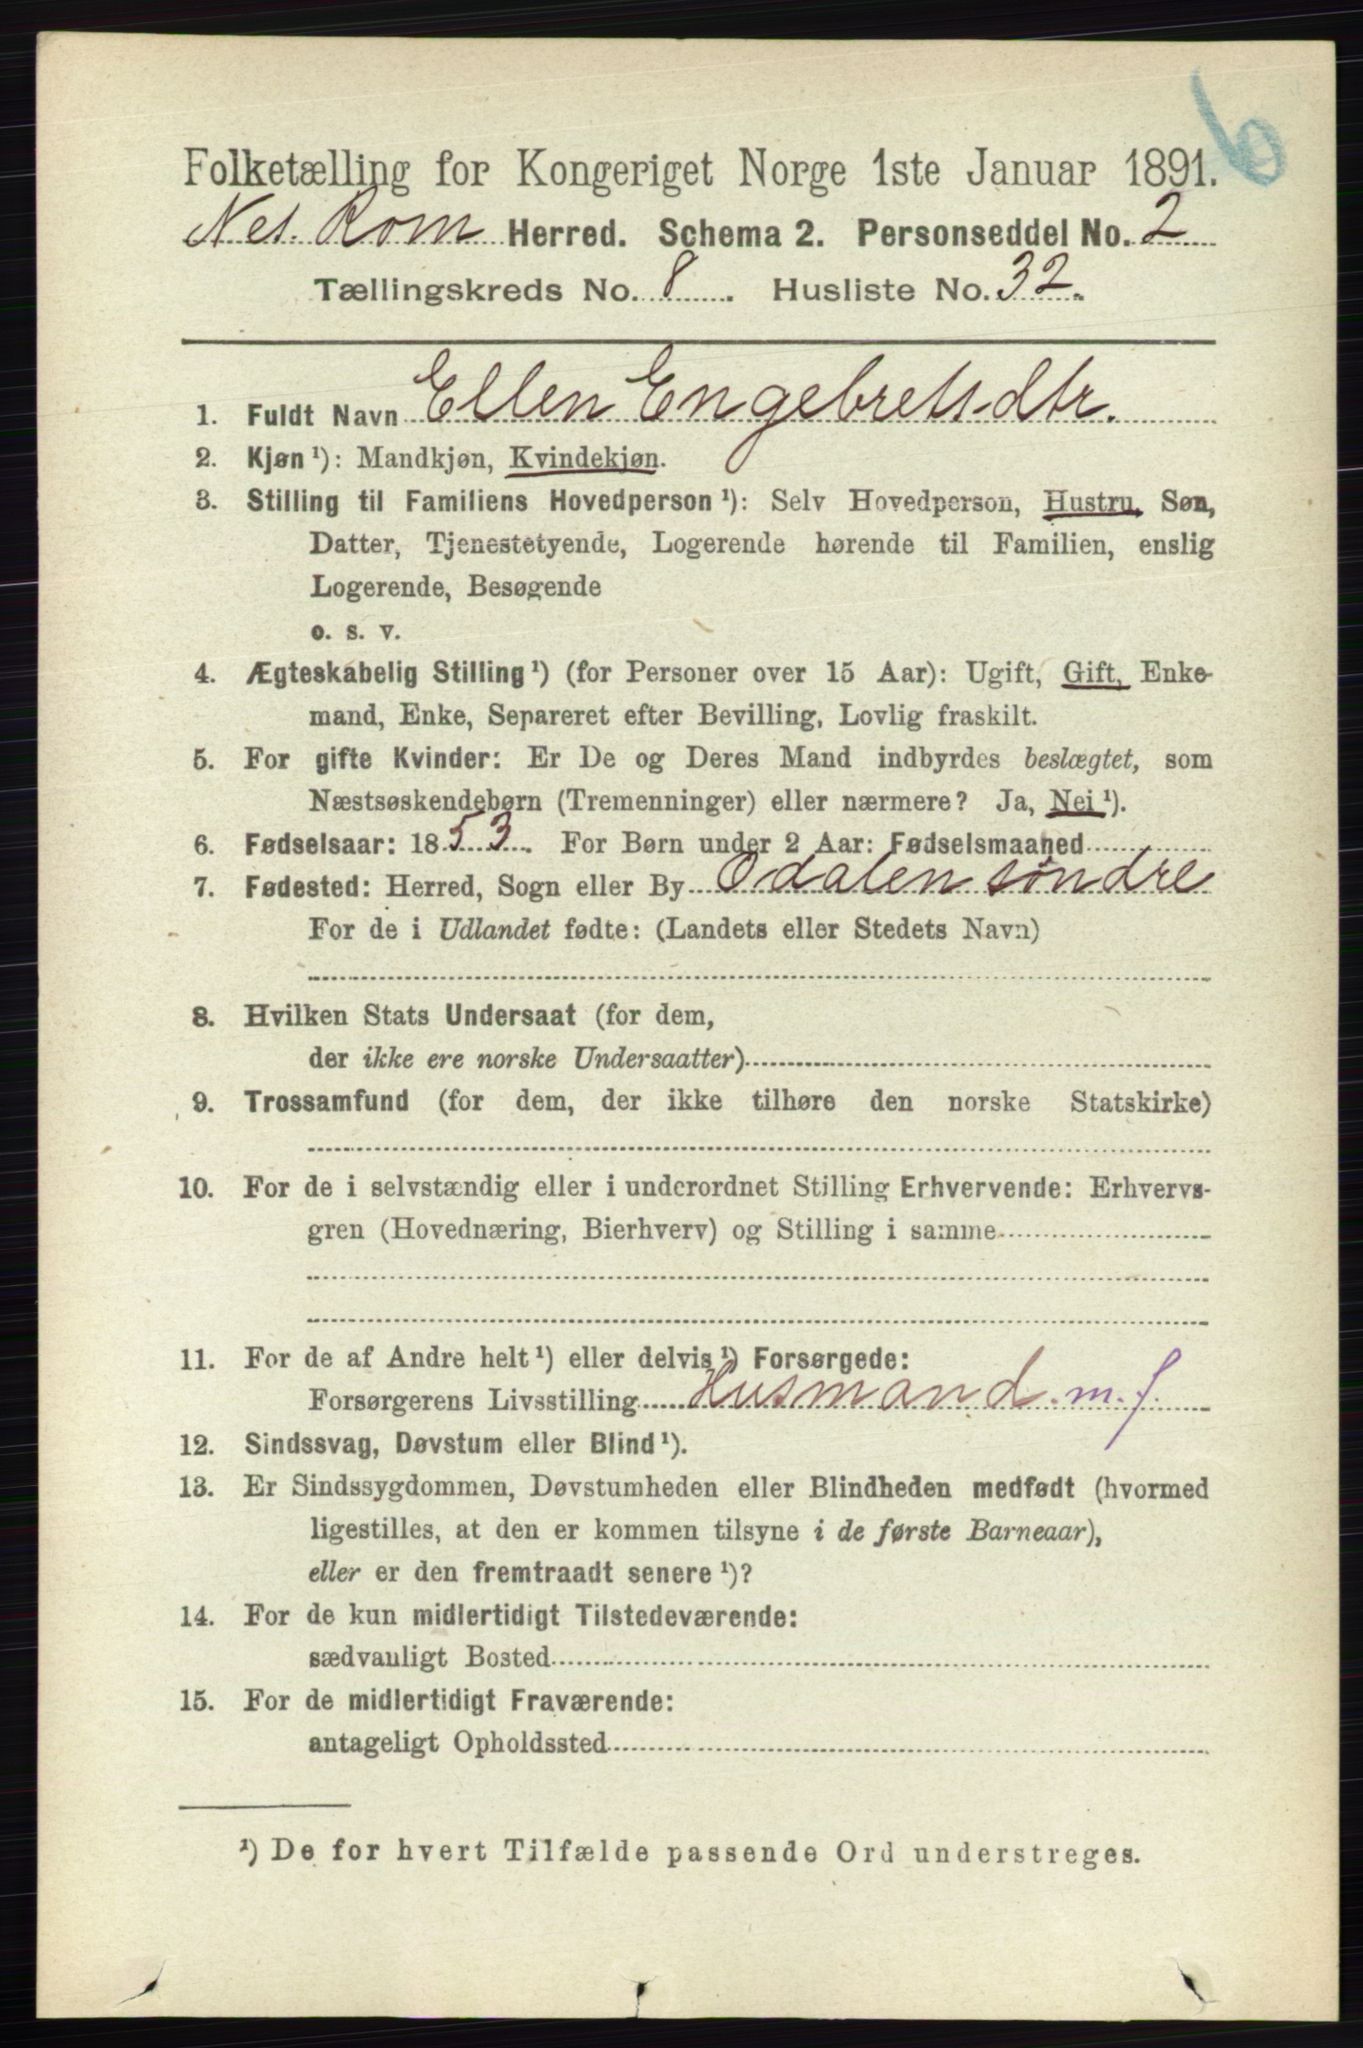 6
Folketælling for Kongeriget Norge 1ste Januar 1891.
Nes. Rom Herred. Schema 2. Personseddel No. 2
Tællingskreds No. 8. Husliste No. 32.
1. Fuldt Navn Ellen Engebretsdtr.
2. Kjøn ¹): Mandkjøn, Kvindekjøn.
3. Stilling til Familiens Hovedperson ¹): Selv Hovedperson, Hustru, Søn,
Datter, Tjenestetyende, Logerende hørende til Familien, enslig
Logerende, Besøgende
o. s. v.
4. Ægteskabelig Stilling ¹) (for Personer over 15 Aar): Ugift, Gift, Enke-
mand, Enke, Separeret efter Bevilling, Lovlig fraskilt.
5. For gifte Kvinder: Er De og Deres Mand indbyrdes beslægtet, som
Næstsøskendebørn (Tremenninger) eller nærmere? Ja, Nei ¹).
6. Fødselsaar: 1853. For Børn under 2 Aar: Fødselsmaaned
7. Fødested: Herred, Sogn eller By Odalen søndre
For de i Udlandet fødte: (Landets eller Stedets Navn)
8. Hvilken Stats Undersaat (for dem,
der ikke ere norske Undersaatter)
9. Trossamfund (for dem, der ikke tilhøre den norske Statskirke)
10. For de i selvstændig eller i underordnet Stilling Erhvervende: Erhvervs-
gren (Hovednæring, Bierhverv) og Stilling i samme
11. For de af Andre helt ¹) eller delvis ¹) Forsørgede:
Forsørgerens Livsstilling Husmand. m. j.
12. Sindssvag, Døvstum eller Blind ¹).
13. Er Sindssygdommen, Døvstumheden eller Blindheden medfødt (hvormed
ligestilles, at den er kommen tilsyne i de første Barneaar),
eller er den fremtraadt senere ¹)?
14. For de kun midlertidigt Tilstedeværende:
sædvanligt Bosted
15. For de midlertidigt Fraværende:
antageligt Opholdssted
¹) De for hvert Tilfælde passende Ord understreges.